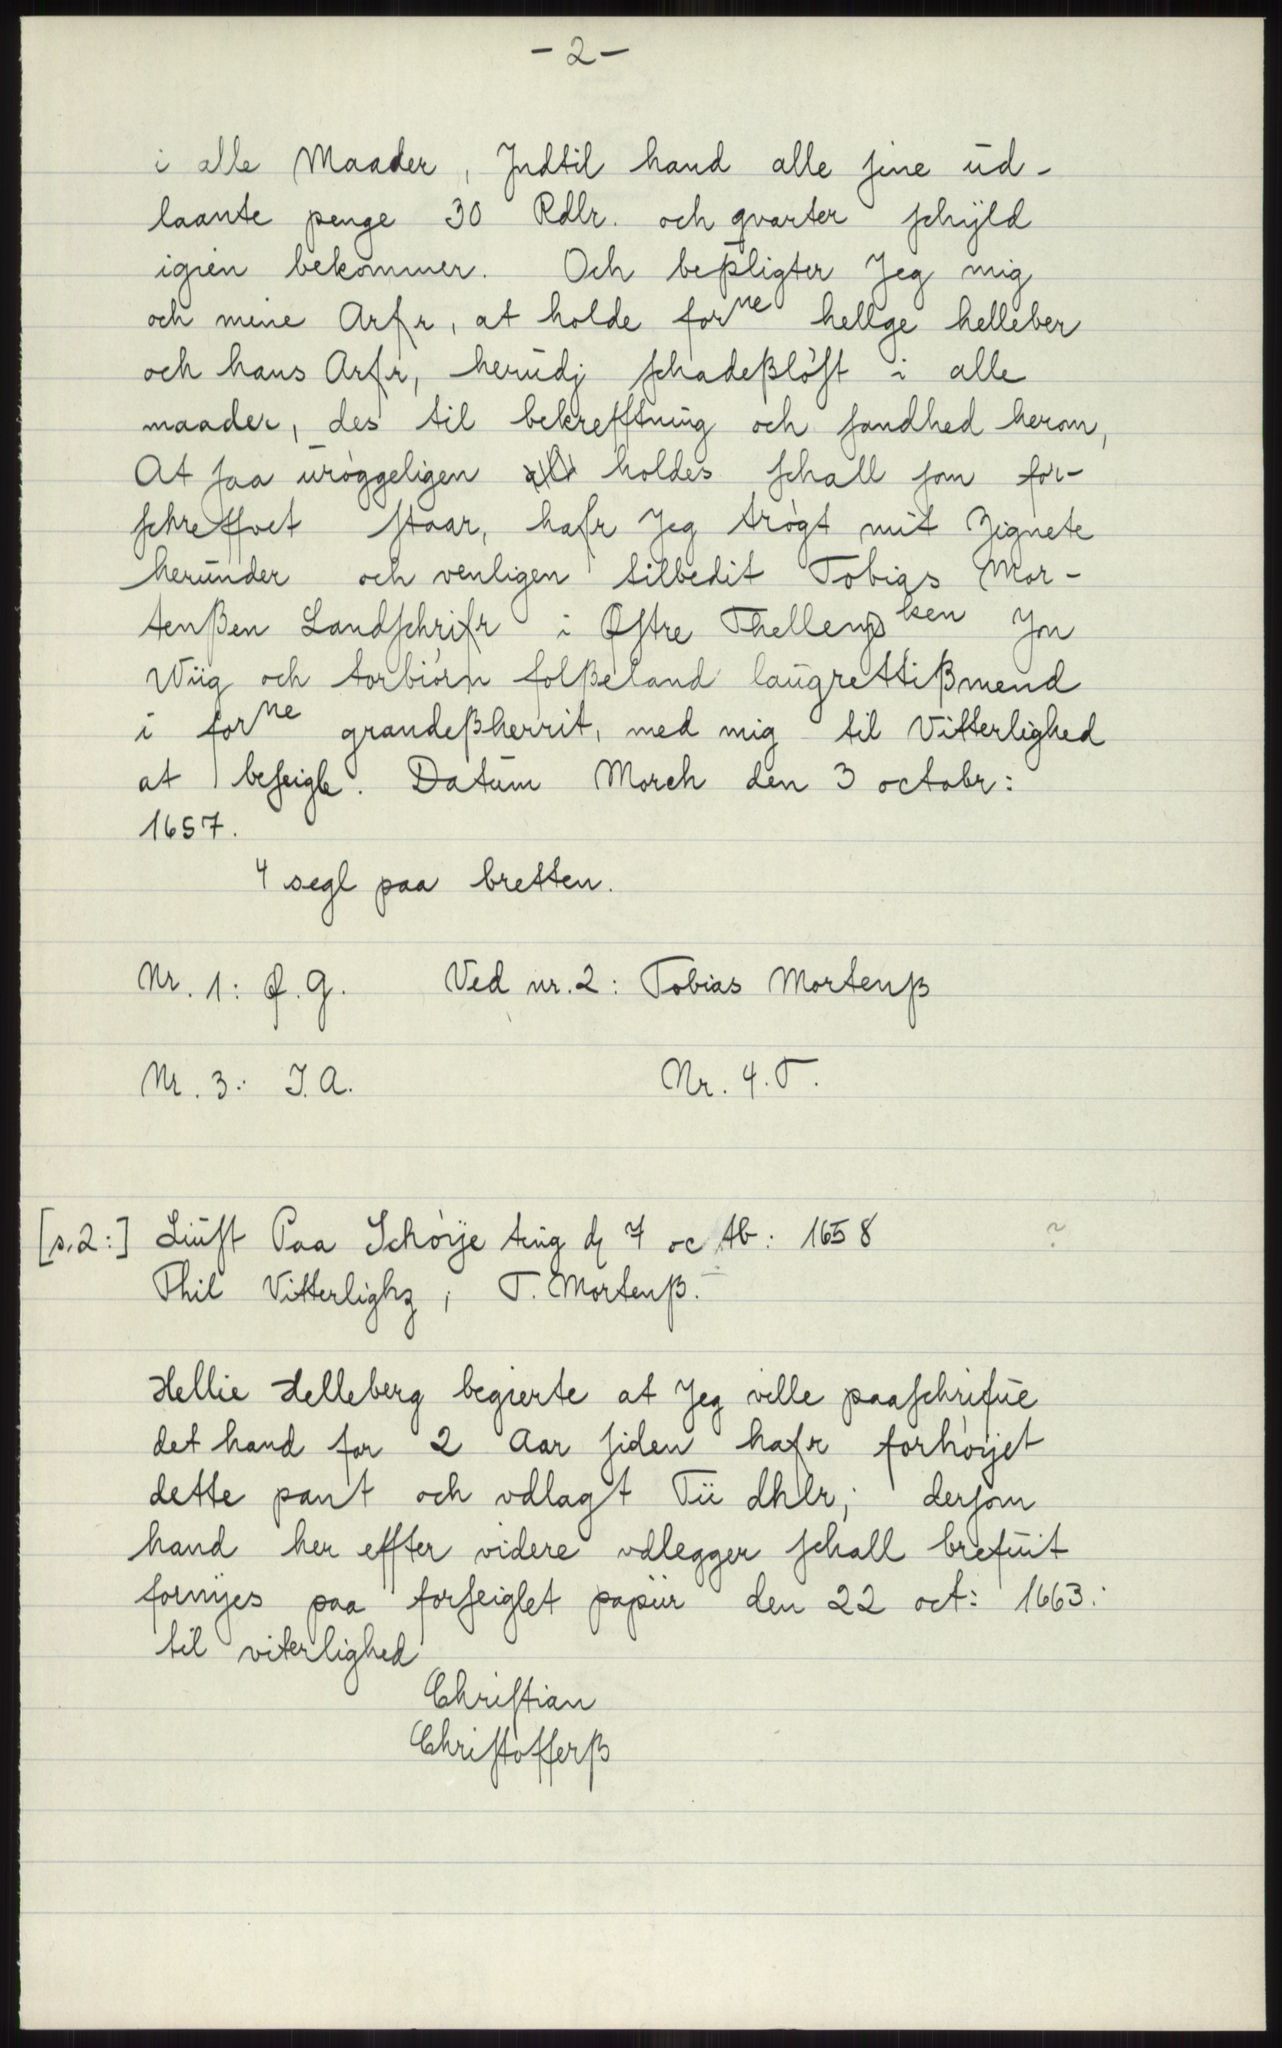 - 2 -
i alle Maader, Jndtil hand alle sine ud-
laante penge 30 Rdlr. och qvarter schÿld
igien bekommer. Och bepligter Jeg mig
och mine Arfr, at holde forne hellge helleber
och hans Arfr, herudj schadeßlößt i alle
maader, des til bekrefftning och sandhed herom,
At saa uröggeligen holdes schall som for-
schreffvet staar, hafr Jeg trögt mit Zignete
herunder och venligen tilbedit Tobias Mor-
tenßen Landschrifr i Østre Thellemarken Jon
Wiig och torbiörn folßeland laugrettißmend
i forne grandeßherrit, med mig til Vitterlighed
at beseigle. Datum Morch den 3 octobr:
1657.
4 segl paa bretten.
Nr. 1: Ø. G. Ved nr. 2: Tobias Mortenß
Nr. 3: J. A. Nr. 4. T.
[s. 2:] Liust Paa Schöÿe ting d 7 octb: 1658 ?
Thil Vitterlighz, T. Mortenß.
Hellie Helleberg begierte at Jeg ville paaschrifue
det hand for 2 Aar siden hafr forhöÿet
dette pant och vdlagt Tii dhlr; dersom
hand her effter videre vdlegger schall brefuit
fornÿes paa forseiglet papiir den 22 oct: 1663:
til viterlighed
Christian
Christofferß